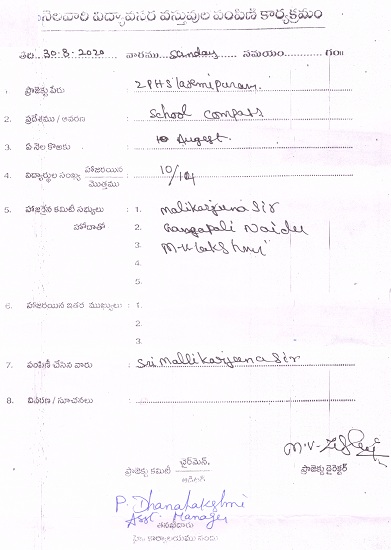 నెలవారి విద్యావసర వస్తువుల పంపిణీ కార్యక్రమం
తేది 30-8-2020 వారము Sunday సమయం గం॥
1. ప్రాజెక్టు పేరు ZPHS laxmipuram
2. ప్రదేశము / ఆవరణ School Compass
3. ఏ నెల కొఱకు August.
4. విద్యార్థుల సంఖ్య హాజరయిన / మొత్తము 10/104
5. హాజరైన కమిటీ సభ్యులు : 1. Malikarjuna Sir
హోదాతో 2. Gangapali Naidu
3. M-V lakshmi
6. హాజరయిన ఇతర ముఖ్యులు : 1.
2.
3.
7. పంపిణీ చేసిన వారు Sri Mallikarjuna Sir
8. వివరణ / సూచనలు
ప్రాజెక్టు కమిటీ ఛైర్మెన్,
ప్రాజెక్టు డైరెక్టర్
P. Dhanalakshmi
Asst. Manager